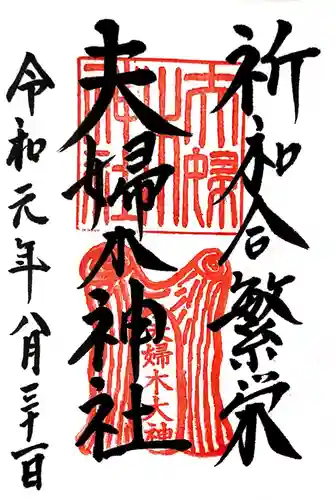 祈和合繁栄
夫婦木神社
夫婦木神社
夫婦木大神
令和元年八月三十一日